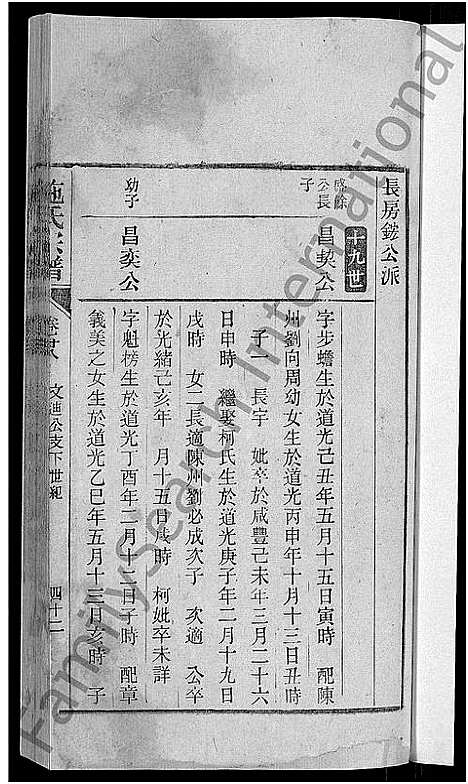 長房鋑公派
十九世
盛餘
公長
子
昌契公
字步蟾生於道光己丑年五月十五日寅時 配陳
州劉向周幼女生於道光丙申年十月十三日丑時
子一 長宇 妣卒於咸豐己未年三月二十六
日申時 繼娶柯氏生於道光庚子年二月十九日
戌時 女二長適陳州劉必成次子 次適 公卒
於光緒己亥年 月十五日戌時 柯妣卒未詳
幼子
昌奕公
字魁榜生於道光丁酉年二月十二日子時 配章
義美之女生於道光乙巳年五月十三日亥時 子
施氏宗譜
卷廿八
文迪公支下世紀
四十二
FamilySearch International